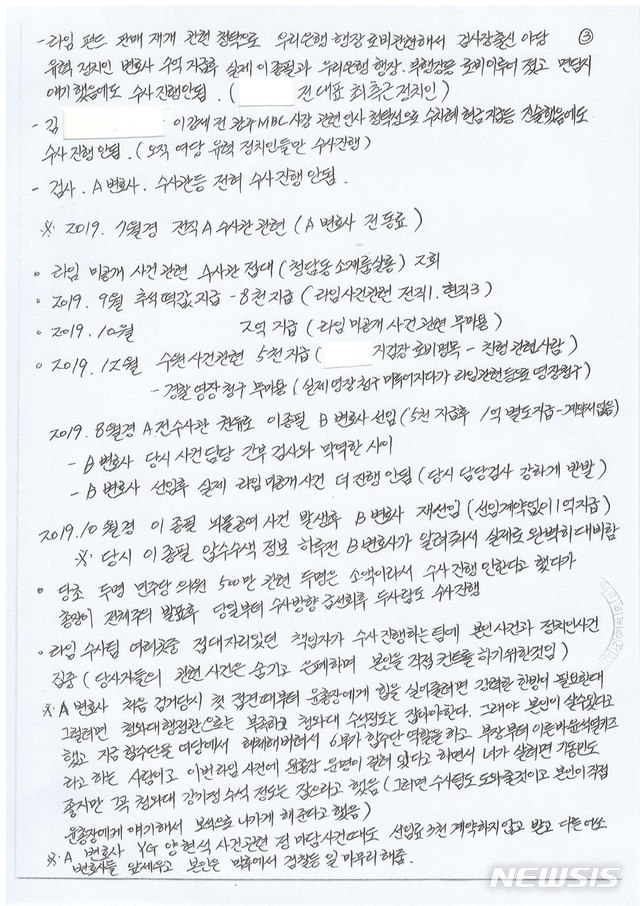 - 라임 펀드 판매 재개 관련 청탁으로 우리은행 행장 로비관련해서 검사장출신 야당 ③
유력 정치인 변호사 수억 지급후 실제 이종필과 우리은행 행장. 부행장등 로비이루어 졌고 면담시
얘기 했음에도 수사 진행안됨. ( 전 대표 최측근 정치인 )
- 김 이강제 전 광주MBC 사장 관련 인사 청탁성으로 수차례 현금 지급등 진술했음에도
수사 진행 안됨. ( 오직 여당 유력 정치인들만 수사진행 )
- 검사. A 변호사. 수사관등 전혀 수사 진행 안됨.
※. 2019. 7월경 전직 A 수사관 관련 ( A 변호사 전동료 )
o 라임 미공개 사건 관련 수사관 접대 ( 청담동 소재룸살롱 ) 2회
o 2019. 9월 추석떡값 지급 - 8천 지급 ( 라임사건관련 전직1. 현직3 )
o 2019. 10월 2억 지급 ( 라임 미공개 사건 관련 무마용 )
o 2019. 12월 수원사건관련 5천 지급 ( 지검장 로비명목 - 친형 관련사람 )
- 경찰 영장 청구 무마용 ( 실제 영장 청구 미루어지다가 라임관련등으로 영장청구 )
2019. 8월경 A 전수사관 권유로 이종필 B 변호사 선임 ( 5천 지급후 1억 별도지급 - 계약서없음 )
- B 변호사 당시 사건 담당 간부 검사와 막역한 사이
- B 변호사 선임후 실제 라임 미공개 사건 더 진행 안됨 ( 당시 담당검사 강하게 반발 )
2019. 10월경 이종필 뇌물공여 사건 발생후 B 변호사 재선임 ( 선임계약없이 1억지급 )
※. 당시 이종필 압수수색 정보 하루전 B 변호사가 알려줘서 실제로 완벽히 대비함
o 당초 두명 민주당 의원 500만 관련 두명은 소액이라서 수사진행 안한다고 했다가
총장이 전체주의 발표후 당일부터 수사방향 급선회후 두사람도 수사진행
o 라임 수사팀 여러차중 접대자리있던 책임자가 수사 진행하는 팀에 본인사건과 정치인사건
집중 ( 당사자들의 관련 사건은 숨기고 은폐하며 본인을 직접 컨트롤 하기위한것임 )
※ A 변호사 처음 검거당시 첫 접견때부터 윤총장에게 힘을 실어줄려면 강력한 한방이 필요한데
그럴려면 청와대 행정관으로는 부족하고 청와대 수석정도는 잡아야한다. 그래야 본인이 살수있다고
했고 지금 합수단을 여당에서 해체해버려서 6부가 합수단 역할을 하고 부장부터 이른바 윤석열키즈
라고 하는 사람이고 이번라임 사건에 윤총장 운명이 걸려 있다고 하면서 너가 살려면 기동민도
좋지만 꼭 청와대 강기정 수석 정도는 잡으라고 했음 ( 그러면 수사팀도 도와줄것이고 본인이 직접
윤총장에게 얘기해서 보석으로 나가게 해준다고 했음 )
※. A 변호사 YG 양현석 사건관련 정 마담사건때도 선임료 3천 계약하지않고 받고 다른 어소
변호사들 앞세우고 본인은 막후에서 검찰등 일 마무리 해줌.
NEWSIS